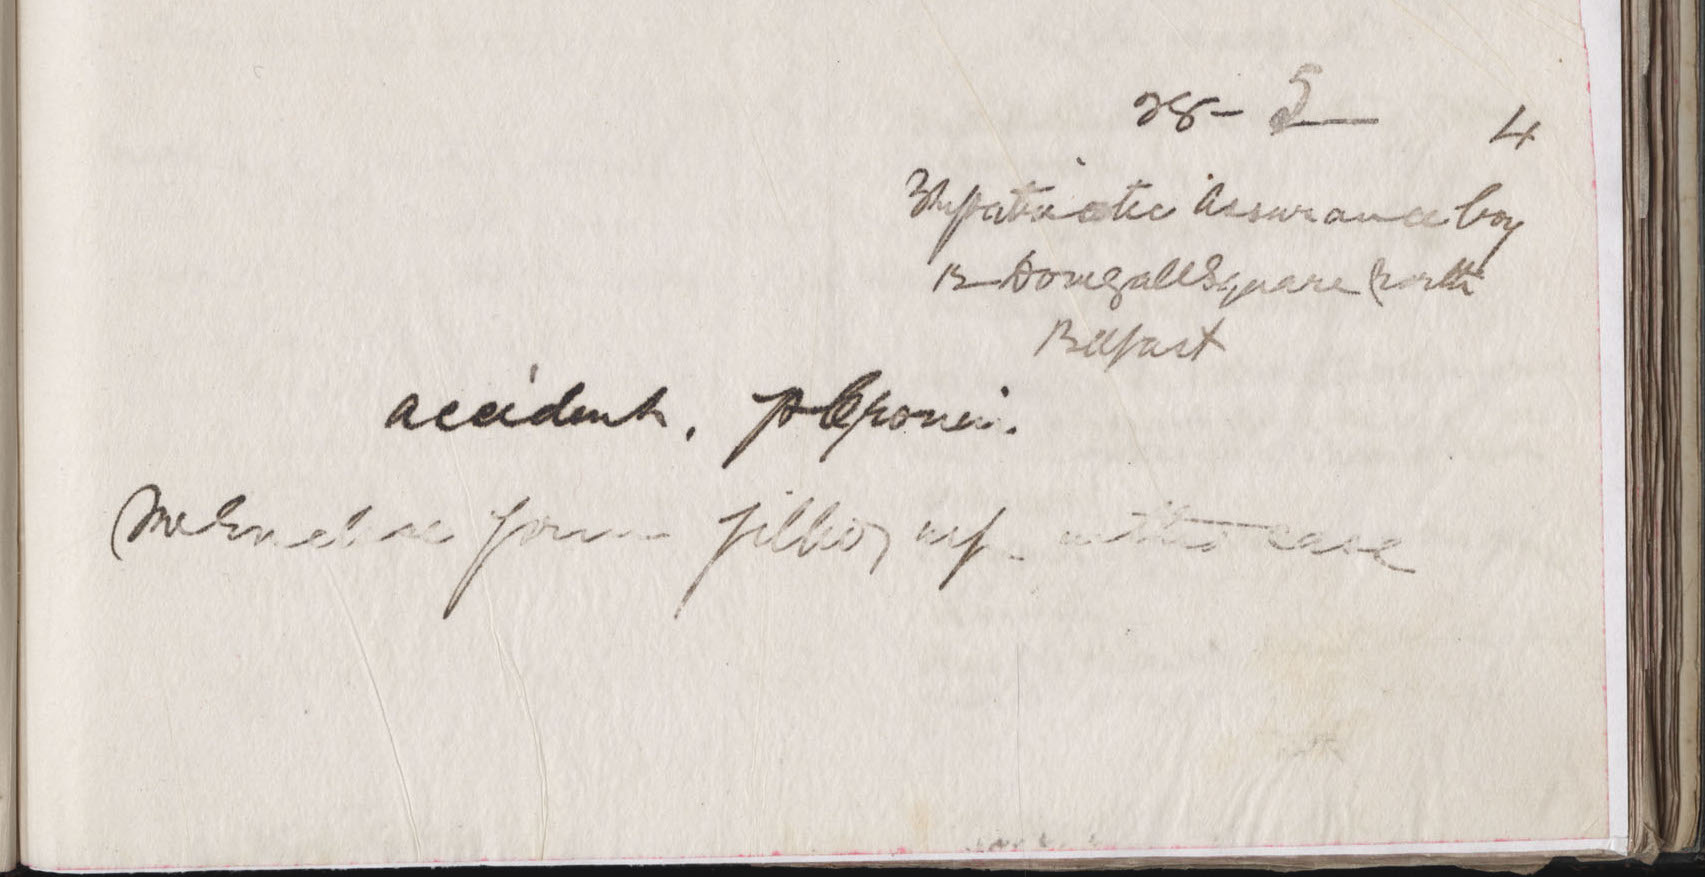 28 - 5 4
The patriotic Assurance Coy
12 Donegall Square North
Belfast
accident. P Cronin.
We Enclose form filled up in this case